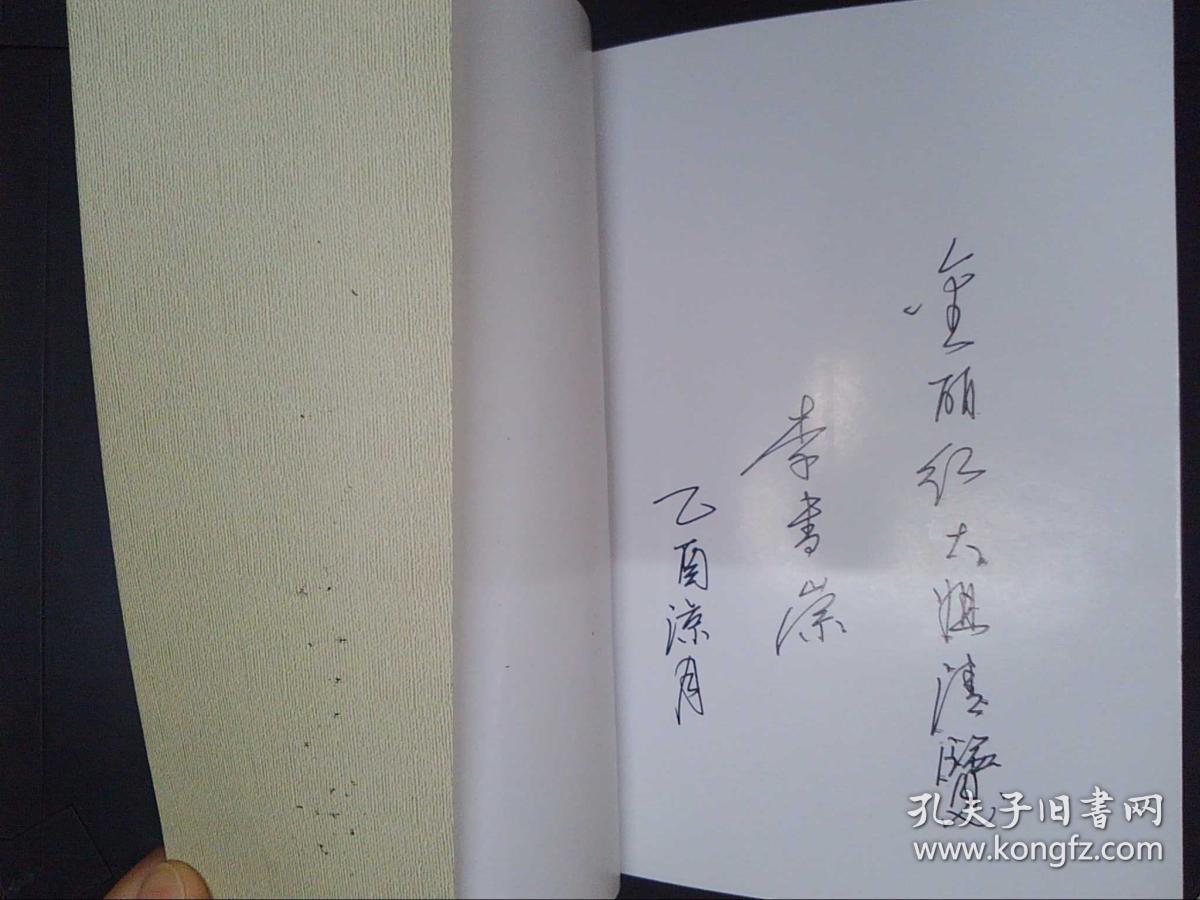 金丽红大姐清覽
李書崇
乙酉涼月
孔夫子旧书网
www.kongfz.com